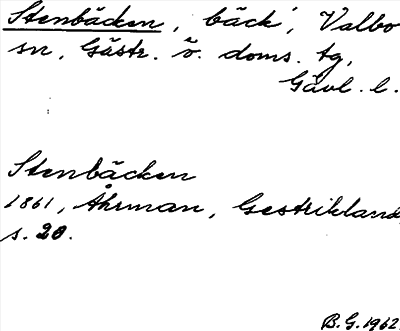 Stenbäcken, bäck, Valbo
sn, Gästr. ö. doms. tg,
Gävl. l.
Stenbäcken
1861, Åhrman, Gestrikland,
s. 20.
B.G. 1962